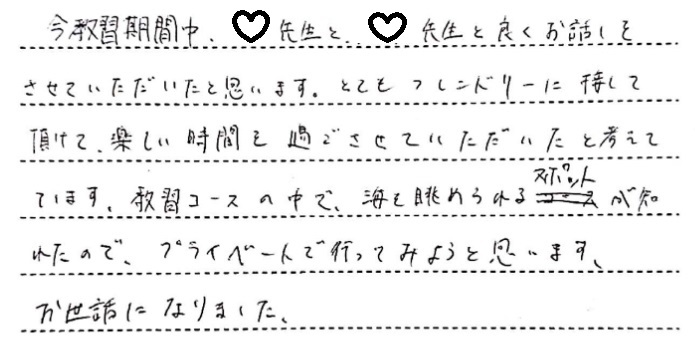 今教習期間中、♡先生と、♡先生と良くお話しを
させていただいたと思います。とてもフレンドリーに接して
頂けて、楽しい時間を過ごさせていただいたと考えて
ています。教習コースの中で、海を眺められるスポット が知
れたので、プライベートで行ってみようと思います、
お世話になりました、